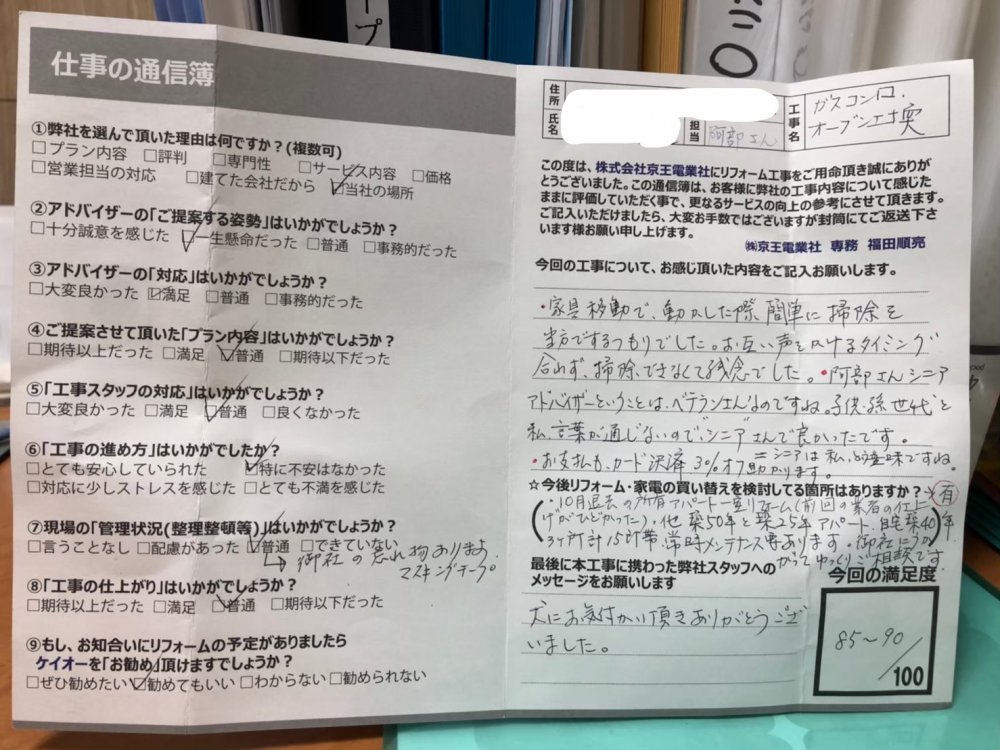 仕事の通信簿
①弊社を選んで頂いた理由は何ですか？(複数可)
□プラン内容 □評判 □専門性 □サービス内容 □価格
□営業担当の対応 □建てた会社だから ☑当社の場所
②アドバイザーの「ご提案する姿勢」はいかがでしょうか？
□十分誠意を感じた ☑一生懸命だった □普通 □事務的だった
③アドバイザーの「対応」はいかがでしょうか？
□大変良かった ☑満足 □普通 □事務的だった
④ご提案させて頂いた「プラン内容」はいかがでしょうか？
□期待以上だった □満足 ☑普通 □期待以下だった
⑤「工事スタッフの対応」はいかがでしょうか？
□大変良かった □満足 ☑普通 □良くなかった
⑥「工事の進め方」はいかがでしたか？
□とても安心していられた ☑特に不安はなかった
□対応に少しストレスを感じた □とても不満を感じた
⑦現場の「管理状況(整理整頓等)」はいかがでしょうか？
□言うことなし □配慮があった ☑普通 □できていない
↳御社の忘れ物あります
マスキングテープ
⑧「工事の仕上がり」はいかがでしょうか？
□期待以上だった □満足 ☑普通 □期待以下だった
⑨もし、お知合いにリフォームの予定がありましたら
ケイオーを「お勧め」頂けますでしょうか？
□ぜひ勧めたい ☑勧めてもいい □わからない □勧められない
住所
氏名
担当 阿部さん
工事名 ガスコンロ、
オーブン工事
この度は、株式会社京王電業社にリフォーム工事をご用命頂き誠にありが
とうございました。この通信簿は、お客様に弊社の工事内容について感じた
ままに評価していただく事で、更なるサービスの向上の参考にさせて頂きます。
ご記入いただけましたら、大変お手数ではございますが封筒にてご返送下さ
います様お願い申し上げます。
㈱京王電業社 専務 福田順亮
今回の工事について、お感じ頂いた内容をご記入お願いします。
・家具移動で、動かした際、簡単に掃除を
当方でするつもりでした。お互い声をかけるタイミング
合わず、掃除できなくて残念でした。・阿部さんシニア
アドバイザーということは、ベテランさんなのですね。子供・孫世代と
私、言葉が通じないので"シニア"さんで良かったです。
=シニアは私、という意味ですね。
・お支払も、カード決済 3%オフ助かります。
☆今後リフォーム・家電の買い替えを検討してる箇所はありますか？→有
・10月退去の所有アパート一室リフォーム(前回の業者の仕上
げがひどかった)、他 築50年と築25年アパート、自宅築40年
3ヶ所計15世帯、常時メンテナンス事あります。御社にうか
がってゆっくりご相談です。
最後に本工事に携わった弊社スタッフへの
メッセージをお願いします
犬にお気付かい頂きありがとうござ
いました。
今回の満足度
85〜90
/100